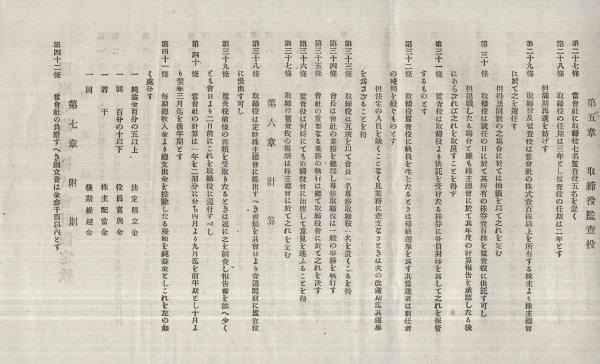 第五章 取締役監査役
第二十七條 當會社に取締役七名監査役五名を置く
第二十八條 取締役の任期は三年とし監査役の任期は二年とす
但滿期再選を妨げず
第二十九條 取締役及監査役は當會社の株式壹百株以上を所有する株主より株主總會
に於て之を選任す
但得票同數の場合に於ては抽籤を以て之を定む
第三十條 取締役は就任の日に於て其所有の株券壹百株を監査役に供託す可し
但退職したる場合と雖も株主總會に於て其年度の計算報告を承認したる後
にあらざれば之れを取戻すことを得ず
第三十一條 監査役は取締役より供託を受けたる株券に各自封印を爲して之れを保管
するものとす
第三十二條 取締役監査役に缺員を生じたるときは補缺選擧を爲す其當選者は前任者
の殘期を繼ぐものとす
但法定の人員を缺くことなく且業務に差支なきときは次の改選期迄其選擧
を爲さゞることを得
第三十三條 取締役は互選を以て會長一名專務取締役一名を置くことを得
第三十四條 會長は會社の業務を總理し專務取締役は一般の事務を執行す
第三十五條 會社の重要なる業務の執行は總て取締役會に於て之を決す
第三十六條 監査役は何時にても取締役會に出席して意見を述ふることを得
第三十七條 取締役監査役の報酬は株主總會に於て之を定む
第六章 計算
第三十八條 取締役は定時株主總會に提出すべき書類を其會日より壹週間前に監査役
に提出す可し
第三十九條 監査役前條の書類を受取りたるときは速に之を調査し報告書を添へ少く
とも會日より二日前にこれを取締役に還付すべし
第四十條 當會社の計算は一年を二期分に分ち四月より九月迄を前半期とし十月よ
り翌年三月迄を後半期とす
第四十一條 毎期總收入金より總支出金を控除したる殘額を純益金としこれを左の如
く處分す
一 純益金百分の五以上 法定積立金
一 同 百分の十以下 役員賞與金
一 若干 株主配當金
一 同 後期繰越金
第七章 附則
第四十二條 當會社の負擔すべき創立費は金參千圓以内とす